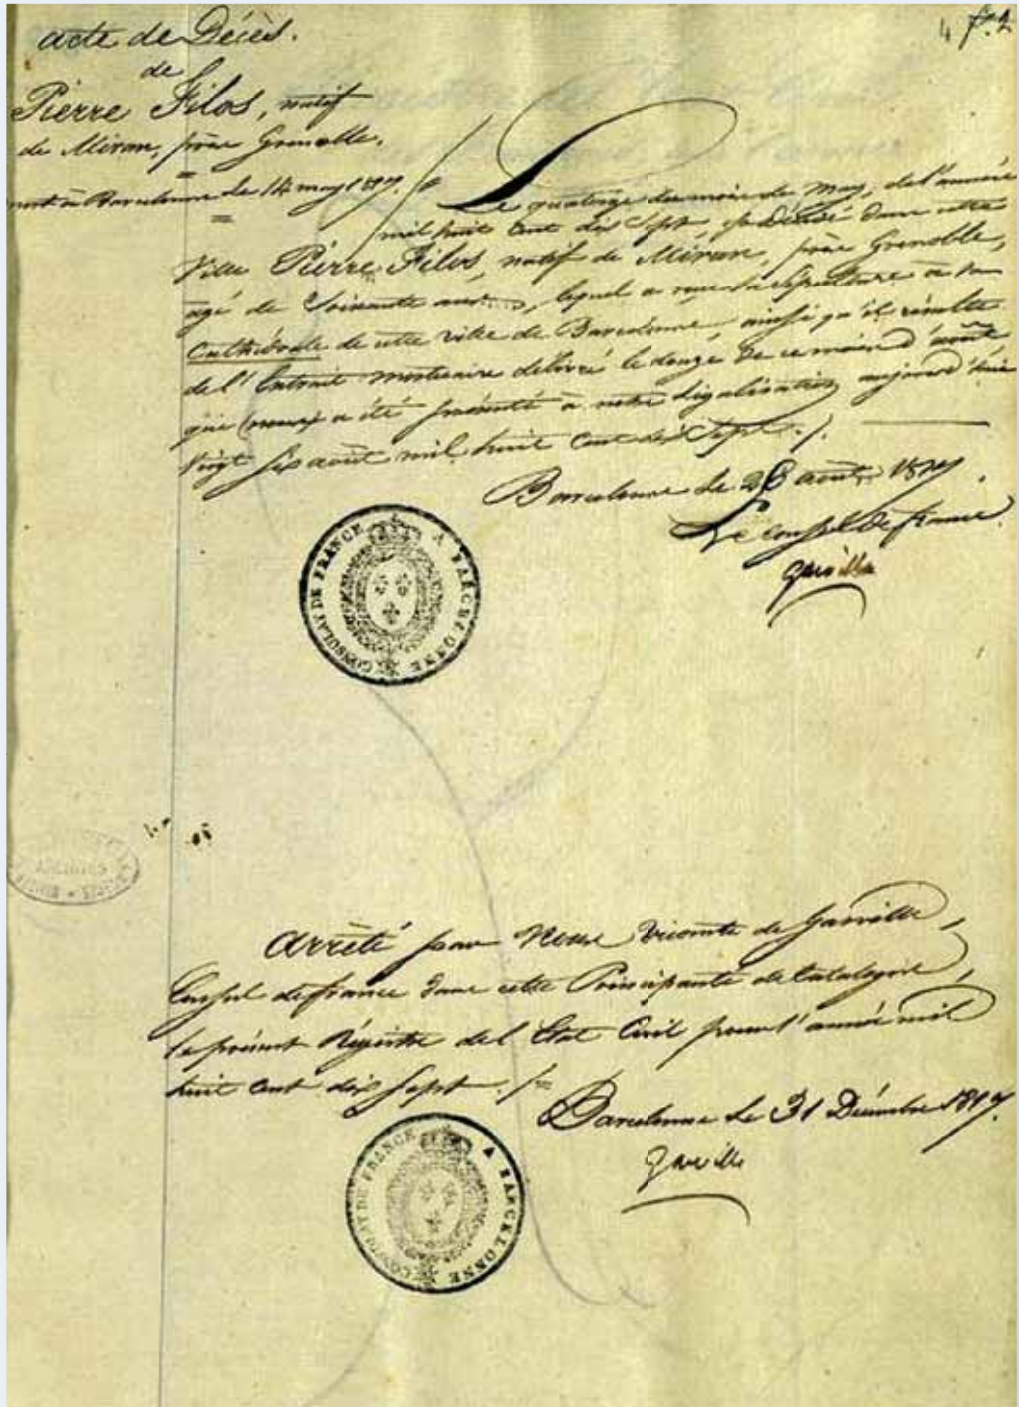 4 f.2
acte de Décès.
de
Pierre Filos, natif
de Miran, près Grenoble.
mort à Barcelonne le 14 may 1817.
Le quatorze du mois de May, de l'année
mil huit Cent dix Sept, est Décédé dans cette
Ville Pierre Filos, natif de Miran, près Grenoble,
agé de Soixante ans, lequel a reçu la Sépulture à la
Cathédrale de cette ville de Barcelonne, ainsi qu'il résulte
de l'Extrait mortuaire délivré le douze de ce mois d'août
qui (nous) a été présenté à notre Légalisation aujourd'hui
Vingt Six août mil huit Cent dix Sept ./.
Barcelonne le 26 août 1817.
Le consul de france
Garville
CONSULAT DE FRANCE A BARCELONNE
ARCHIVES
Arrêté par Nous Vicomte de Garville,
Consul de france dans cette Principauté de Catalogne,
le présent Régistre de l'Etat Civil pour l'année mil
huit Cent dix Sept ./=
Barcelonne le 31 Décembre 1817.
Garville
CONSULAT DE FRANCE A BARCELONNE